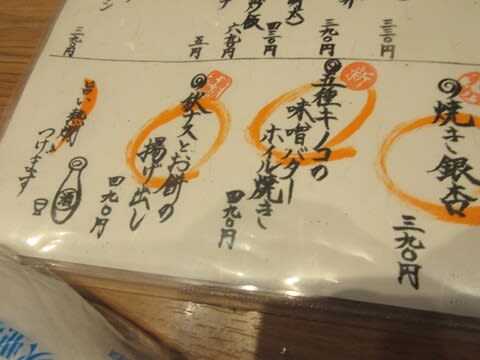 三三〇円
三九〇円
四三〇円
炒飯
六九〇円
五円
三九〇円
焼き銀杏
三九〇円
新
五種キノコの
味噌バター
ホイル焼き
四九〇円
秋ナスとお餅の
揚げ出し
四九〇円
旨い熱燗
つけてます
酒